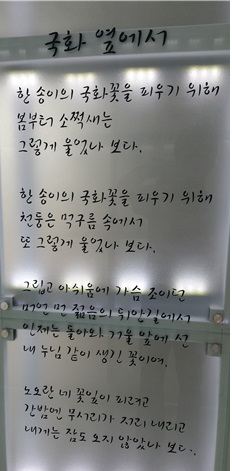 국화 옆에서
한 송이의 국화꽃을 피우기 위해
봄부터 소쩍새는
그렇게 울었나 보다.
한 송이의 국화꽃을 피우기 위해
천둥은 먹구름 속에서
또 그렇게 울었나 보다.
그립고 아쉬움에 가슴 조이던
머언 먼 젊음의 뒤안길에서
인제는 돌아와 거울 앞에 선
내 누님 같이 생긴 꽃이여.
노오란 네 꽃잎이 피려고
간밤엔 무서리가 저리 내리고
내게는 잠도 오지 않았나 보다.